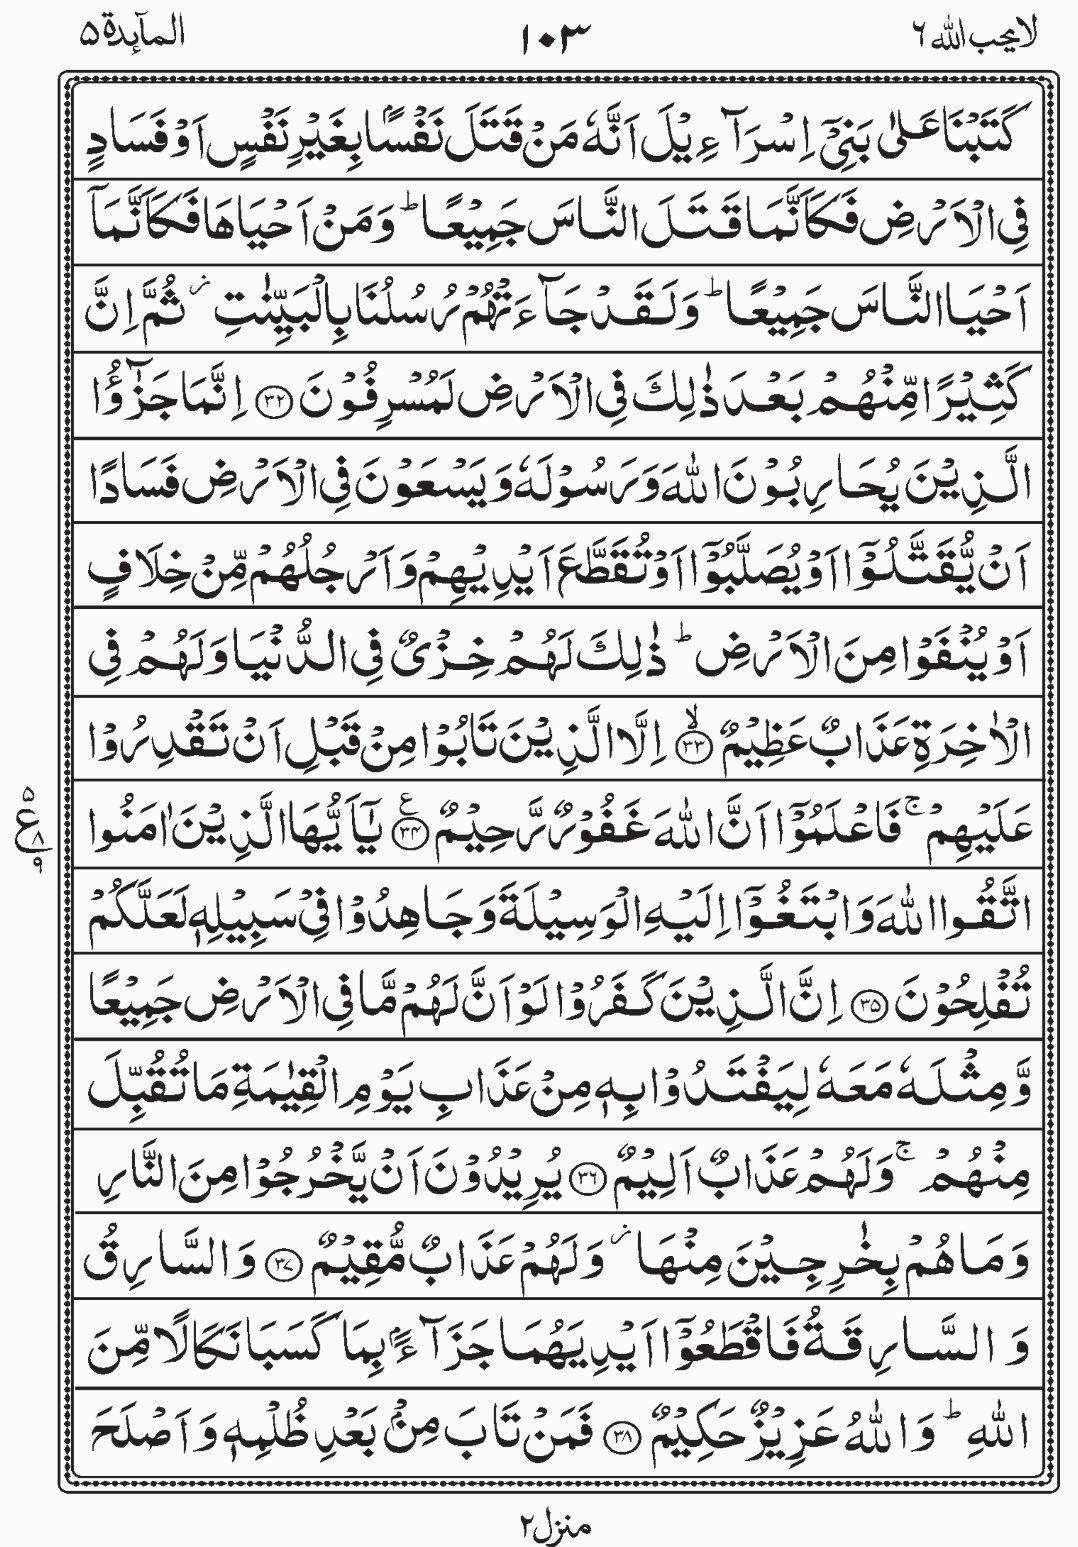 المآىِٕدة ۵
۱۰۳
لا یحب الله ۶
كَتَبْنَا عَلٰى بَنِیْۤ اِسْرَآءِیْلَ اَنَّهٗ مَنْ قَتَلَ نَفْسًۢا بِغَیْرِ نَفْسٍ اَوْ فَسَادٍ
فِی الْاَرْضِ فَكَاَنَّمَا قَتَلَ النَّاسَ جَمِیْعًا ؕ وَ مَنْ اَحْیَاهَا فَكَاَنَّمَاۤ
اَحْیَا النَّاسَ جَمِیْعًا ؕ وَ لَقَدْ جَآءَتْهُمْ رُسُلُنَا بِالْبَیِّنٰتِ ؗ ثُمَّ اِنَّ
كَثِیْرًا مِّنْهُمْ بَعْدَ ذٰلِكَ فِی الْاَرْضِ لَمُسْرِفُوْنَ ۳۲ اِنَّمَا جَزٰٓؤُا
الَّذِیْنَ یُحَارِبُوْنَ اللّٰهَ وَ رَسُوْلَهٗ وَ یَسْعَوْنَ فِی الْاَرْضِ فَسَادًا
اَنْ یُّقَتَّلُوْۤا اَوْ یُصَلَّبُوْۤا اَوْ تُقَطَّعَ اَیْدِیْهِمْ وَ اَرْجُلُهُمْ مِّنْ خِلَافٍ
اَوْ یُنْفَوْا مِنَ الْاَرْضِ ؕ ذٰلِكَ لَهُمْ خِزْیٌ فِی الدُّنْیَا وَ لَهُمْ فِی
الْاٰخِرَةِ عَذَابٌ عَظِیْمٌ ۙ۳۳ اِلَّا الَّذِیْنَ تَابُوْا مِنْ قَبْلِ اَنْ تَقْدِرُوْا
عَلَیْهِمْ ۚ فَاعْلَمُوْۤا اَنَّ اللّٰهَ غَفُوْرٌ رَّحِیْمٌ ۳۴ع یٰۤاَیُّهَا الَّذِیْنَ اٰمَنُوا
۵
ع
۸
۹
اتَّقُوا اللّٰهَ وَ ابْتَغُوْۤا اِلَیْهِ الْوَسِیْلَةَ وَ جَاهِدُوْا فِیْ سَبِیْلِهٖ لَعَلَّكُمْ
تُفْلِحُوْنَ ۳۵ اِنَّ الَّذِیْنَ كَفَرُوْا لَوْ اَنَّ لَهُمْ مَّا فِی الْاَرْضِ جَمِیْعًا
وَّ مِثْلَهٗ مَعَهٗ لِیَفْتَدُوْا بِهٖ مِنْ عَذَابِ یَوْمِ الْقِیٰمَةِ مَا تُقُبِّلَ
مِنْهُمْ ۚ وَ لَهُمْ عَذَابٌ اَلِیْمٌ ۳۶ یُرِیْدُوْنَ اَنْ یَّخْرُجُوْا مِنَ النَّارِ
وَ مَا هُمْ بِخٰرِجِیْنَ مِنْهَا ؗ وَ لَهُمْ عَذَابٌ مُّقِیْمٌ ۳۷ وَ السَّارِقُ
وَ السَّارِقَةُ فَاقْطَعُوْۤا اَیْدِیَهُمَا جَزَآءًۢ بِمَا كَسَبَا نَكَالًا مِّنَ
اللّٰهِ ؕ وَ اللّٰهُ عَزِیْزٌ حَكِیْمٌ ۳۸ فَمَنْ تَابَ مِنْۢ بَعْدِ ظُلْمِهٖ وَ اَصْلَحَ
منزل ۲